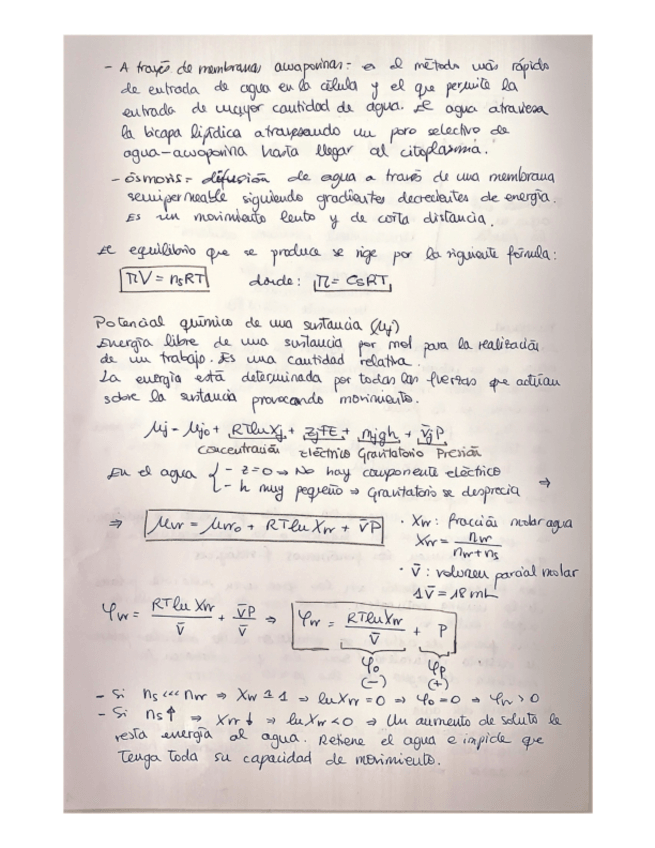 - A través de membranas acuaporinas:- es el método más rápido
de entrada de agua en la célula y el que permite la
entrada de mayor cantidad de agua. El agua atraviesa
la bicapa lipídica atravesando un poro selectivo de
agua-acuaporina hasta llegar al citoplasma.
- Ósmosis:- difusión de agua a través de una membrana
semipermeable siguiendo gradientes decrecientes de energía.
Es un movimiento lento y de corta distancia.
El equilibrio que se produce se rige por la siguiente fórmula:
πV = nsRT donde: π = CsRT
Potencial químico de una sustancia (μj)
Energía libre de una sustancia por mol para la realización
de un trabajo. Es una cantidad relativa.
La energía está determinada por todas las fuerzas que actúan
sobre la sustancia provocando movimiento.
μj - μj0 + RTlnXj + ZjFE + mjgh + V̄jP
concentración Eléctrico Gravitatorio Presión
En el agua { - z=0 ⇒ No hay componente eléctrico
- h muy pequeño ⇒ Gravitatorio se desprecia ⇒
⇒ μw = μw0 + RTlnXw + V̄P
· Xw: fracción molar agua
Xw = nw / nw+ns
· V̄: volumen parcial molar
1V̄ = 18 mL
Ψw = RTlnXw / V̄ + V̄P / V̄ ⇒ Ψw = RTlnXw / V̄ + P
Ψo Ψp
(-) (+)
- Si ns <<< nw ⇒ Xw ≃ 1 ⇒ lnXw = 0 ⇒ Ψo = 0 ⇒ Ψw > 0
- Si ns ↑ ⇒ Xw ↓ ⇒ lnXw < 0 ⇒ Un aumento de soluto le
resta energía al agua. Retiene el agua e impide que
tenga toda su capacidad de movimiento.